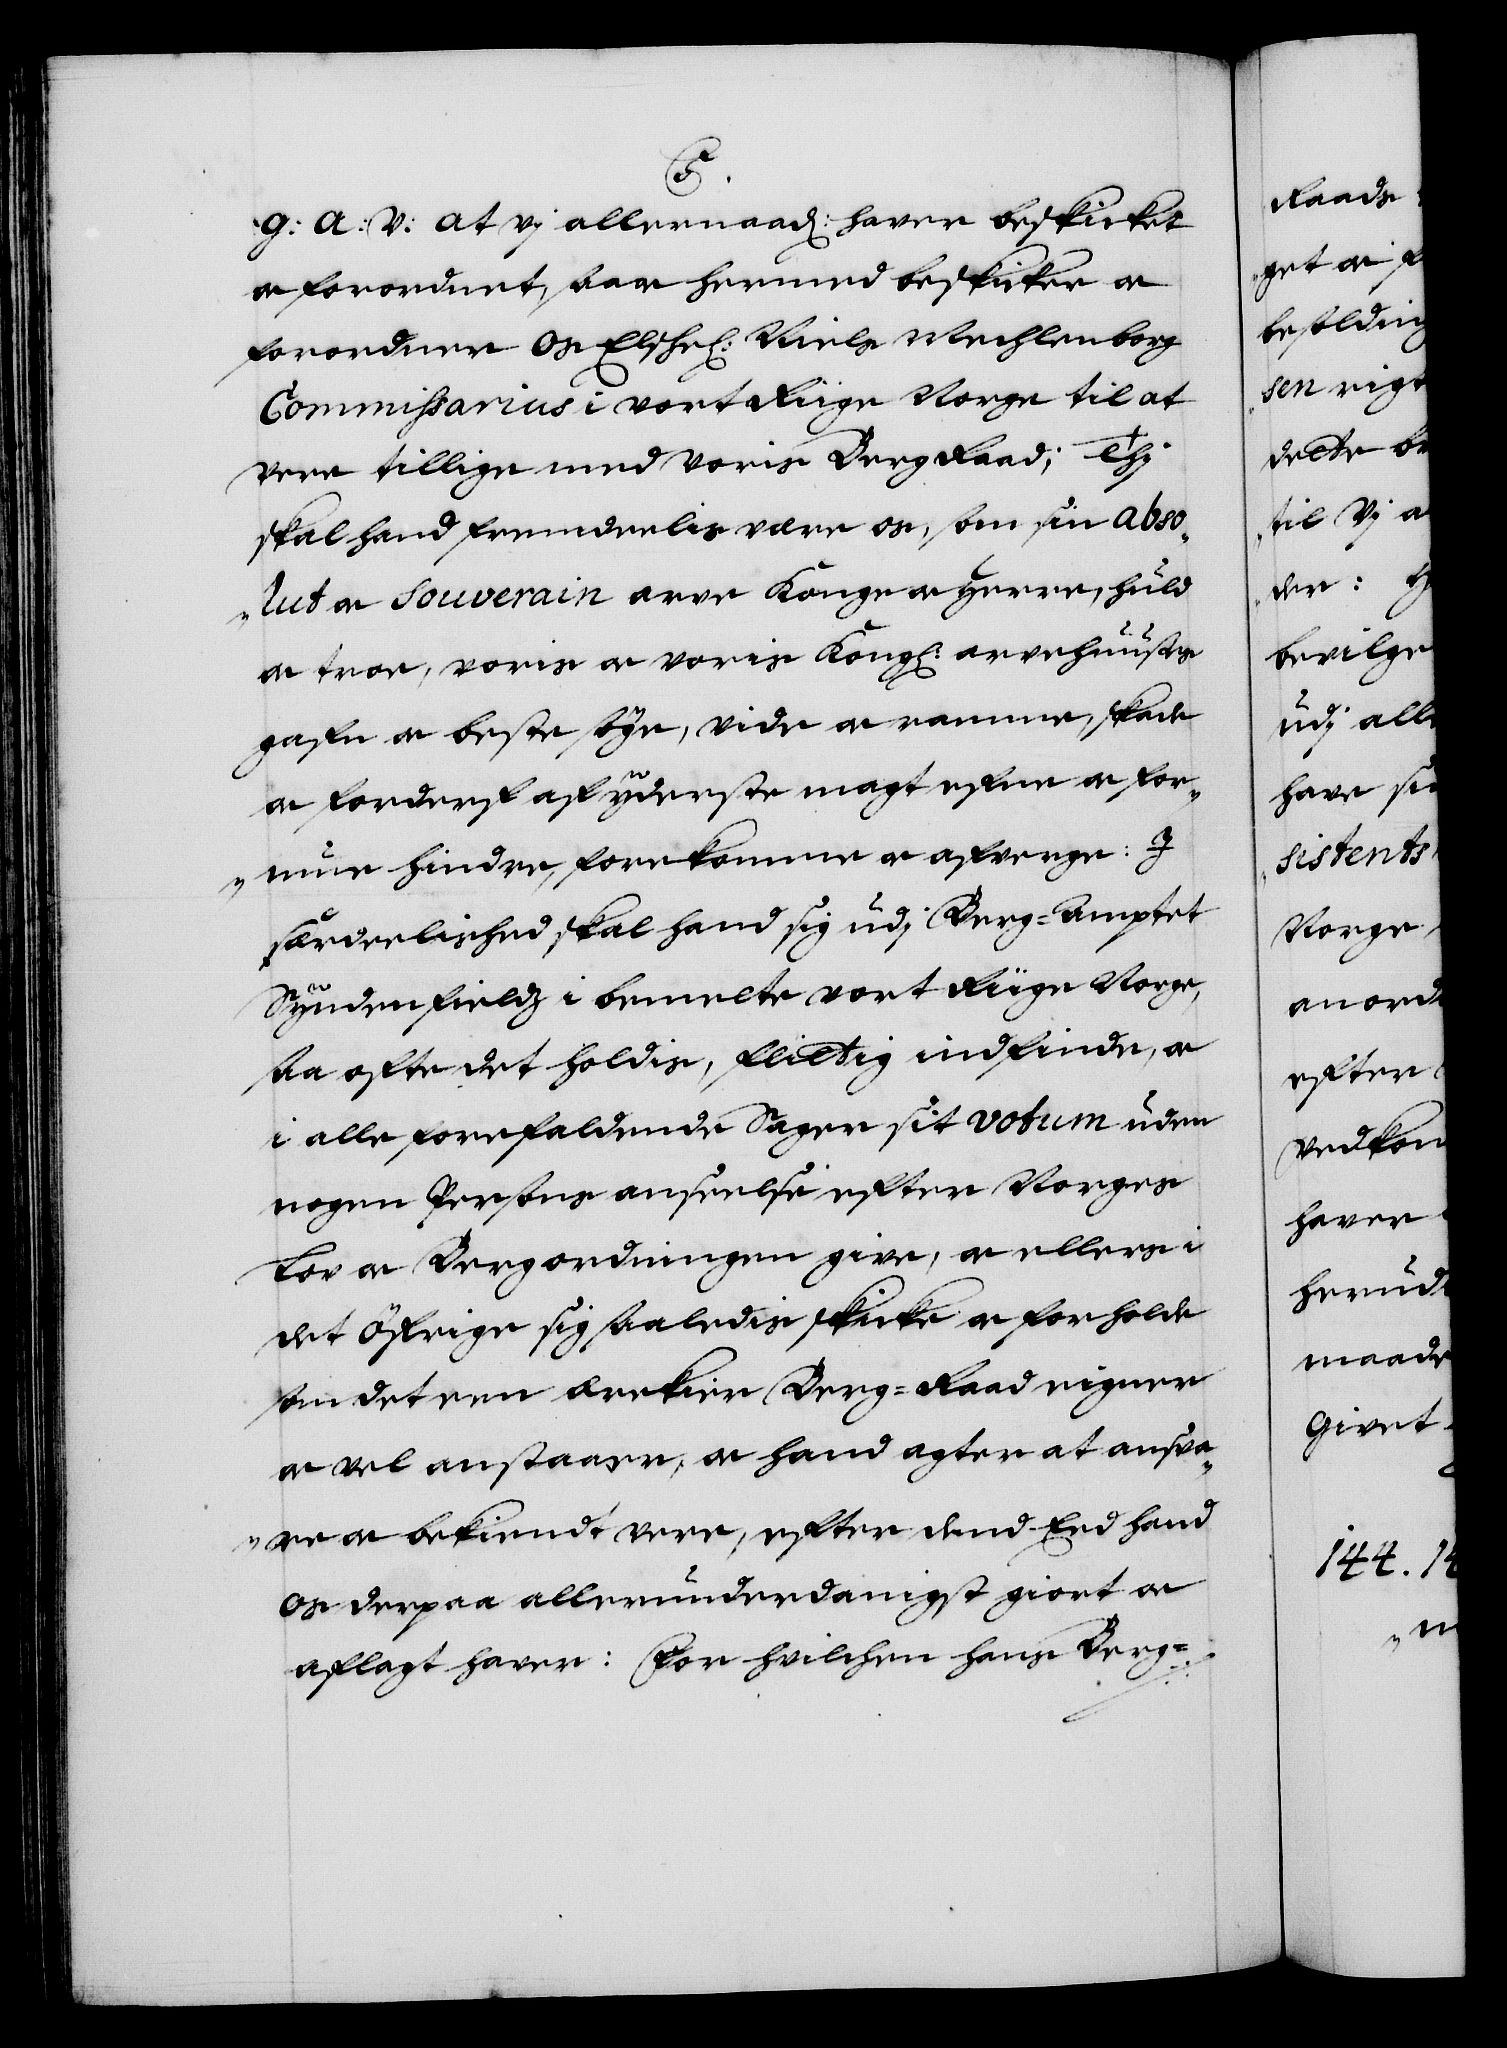 5.
G: A: V: at vj allernaad: haver beskicket
oc forordnet, saa oc hermed beskicker oc
forordner Os Elskel: Niels Mechlenborg
Commissarius i vort Riige Norge til at
vere tillige med voris Berg Raad; Thj
skal hand fremdeelis være os, som sin abso„
„lut oc souverain arve Konge oc Herre, huld
oc troe, voris oc voris Kongl: arvehuusis
gafn oc beste søge, vide oc ramme, skade
oc forderf af yderste magt efne oc for„
„mue hindre, forekomme oc afverge: I
særdeelished skal hand sig udj Berg-Amptet
Syndenfields i bemelte vort Riige Norge,
saa ofte det holdis, flictig indfinde, oc
i alle forefaldende Sager sit votum uden
nogen Persons anseelse efter Norges
Lov oc Bergordningen give, oc ellers i
det Øfrige sig saaledis skicke oc forholde
som det een ærekier Berg-Raad eigner
oc vel anstaaer, oc hand agter at ansva„
„re oc bekiendt vere, efter dend Eed hand
os derpaa allerunderdanigst giort oc
aflagt haver: For hvilchen hans Berg-
Raads
„get oc
besolding
„sen rigt
dette
„til Vj
„der:
bevilge
udj all
have
„sistents
Norge,
anord
efter
vedkom
haver
herud
maade
Givet
144.